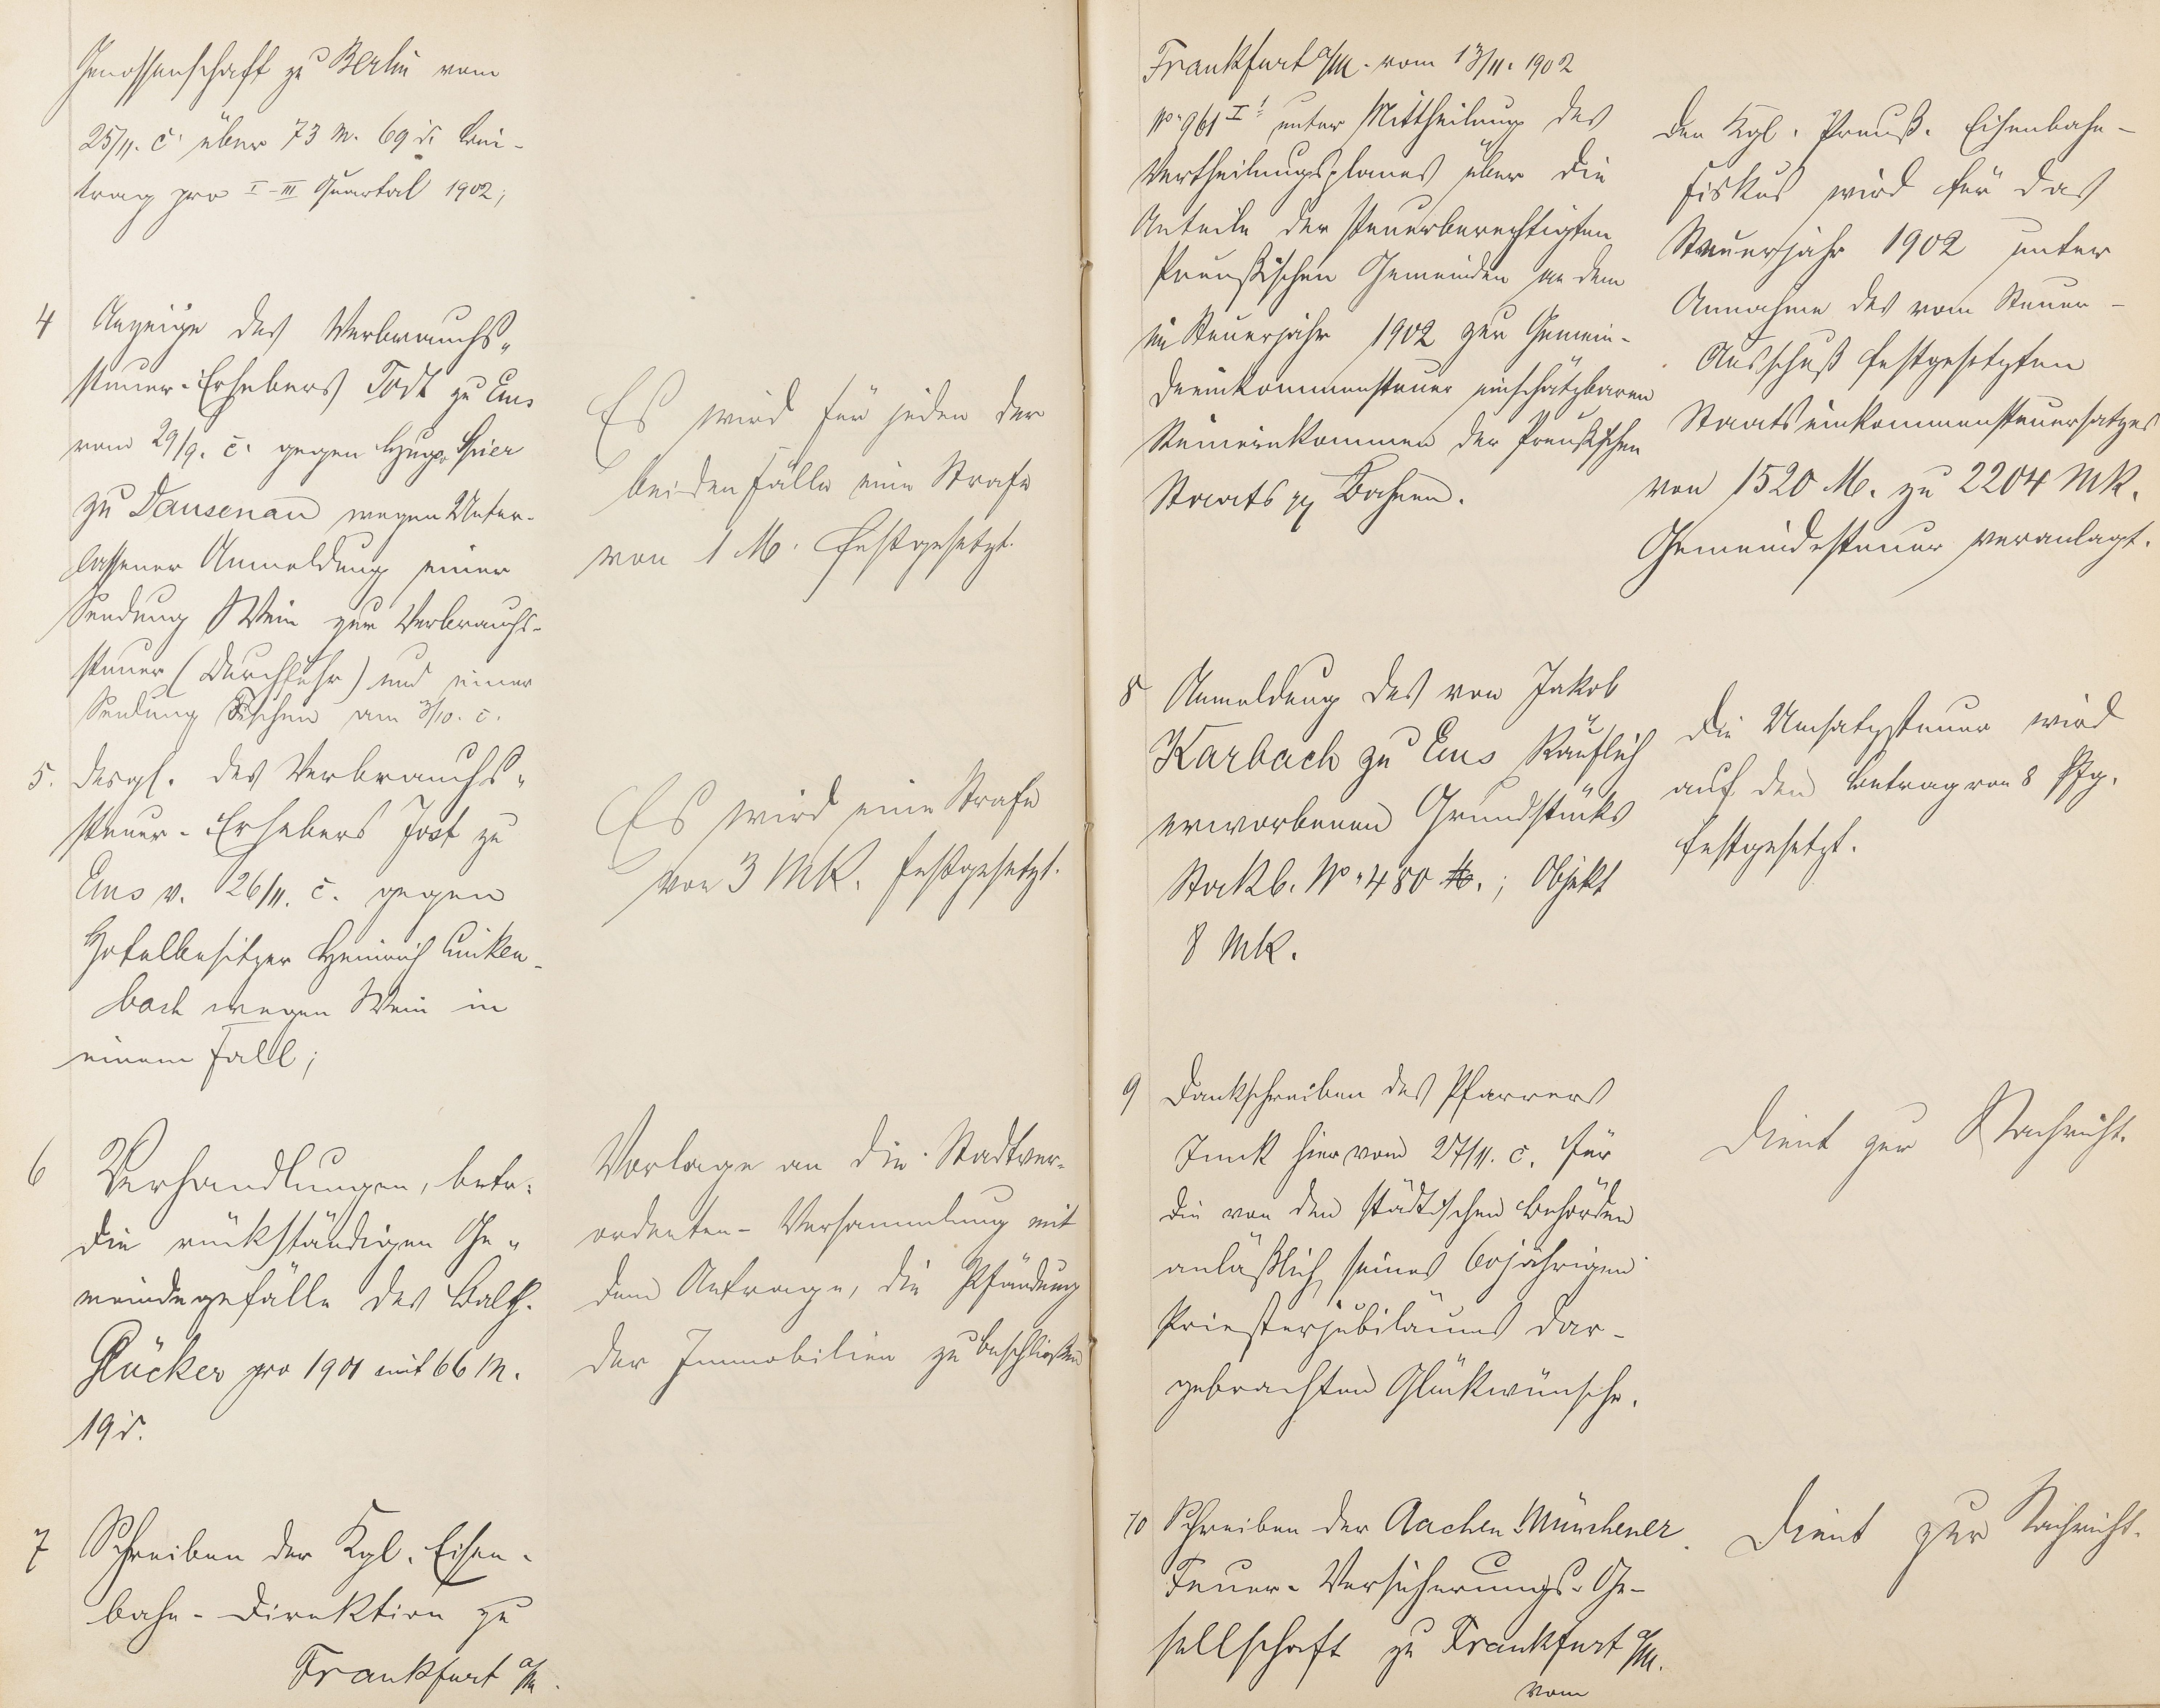 Genossenschaft zu Berlin vom
25/11. c. über 73 M. 69 d. Bei-
trag pro I-III Quartal 1902;
4 Anzeige des Verbrauchs-
steuer-Erhebers Todt zu Ems
vom 29/9. c. gegen Hugo Spier
zu Dausenau wegen Unter-
lassener Anmeldung einer
Sendung Wein zur Verbrauchs-
steuer (Durchfuhr) und einer
Sendung Fischen am 3/10. c.
Es wird für jeden der
beiden Fälle eine Strafe
von 1 M. festgesetzt.
5. desgl. des Verbrauchs-
steuer-Erhebers Jost zu
Ems v. 26/11. c. gegen
Hotelbesitzer Heinrich Linken-
bach wegen Wein in
einem Fall;
Es wird eine Strafe
von 3 Mk. festgesetzt.
6 Verhandlungen, betr.
die rückständigen Ge-
meindegefälle des Balth.
Glücker pro 1901 mit 66 M.
19 d.
Vorlage an die Stadtver-
ordneten-Versammlung mit
dem Antrage, die Pfändung
der Immobilien zu beschließen
7 Schreiben der Kgl. Eisen-
bahn-Direktion zu
Frankfurt a/M.
Frankfurt a/M. vom 13/11. 1902
No 961 I unter Mittheilung des
Vertheilungsplanes über die
Anteile der steuerberechtigten
Preußischen Gemeinden an dem
im Steuerjahr 1902 zur Gemein-
deeinkommensteuer einschätzbaren
Reineinkommen der Preußischen
Staats pp Bahnen.
Der Kgl. Preuß. Eisenbahn-
fiskus wird für das
Steuerjahr 1902 unter
Annahme des vom Steuer-
Ausschuß festgesetzten
Staatseinkommensteuersatzes
von 1520 M. zu 2204 Mk.
Gemeindesteuer veranlagt.
8 Anmeldung des von Jakob
Karbach zu Ems käuflich
erworbenen Grundstücks
Stockb. No 480; Objekt
8 Mk.
Die Umsatzsteuer wird
auf den Betrag von 8 Pfg.
festgesetzt.
9 Dankschreiben des Pfarrers
Junck hier vom 27/11. c. für
die von den städtischen Behörden
anläßlich seines 60jährigen
Priesterjubiläums dar-
gebrachten Glückwünsche.
Dient zur Nachricht.
10 Schreiben der Aachen Münchener
Feuer-Versicherungs-Ge-
sellschaft zu Frankfurt a/M.
vom
Dient zur Nachricht.